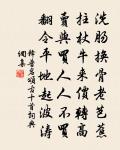 洗肠换骨老芭蕉
拄杖牛来价转高
卖与买人人不买
翻令平地起波涛
释普岩颂古十首词典
网集